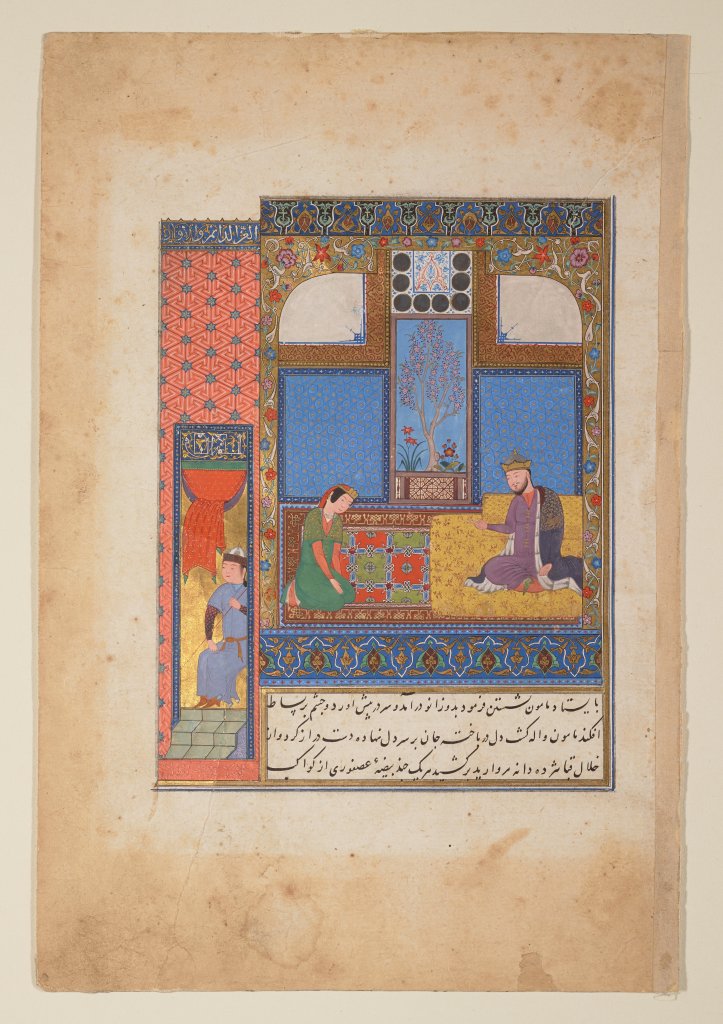 العز الدائم و
بایستاد مامون نشستن فرمود بدو زانو درآمد و سر در پیش آورد و چشم بر بساط
افکند مامون واله گشت دل درباخته جان بر سر دل نهاده دست دراز کرد و از
خلال قبا هژده دانه مروارید برکشید هر یک چند بیضهٔ عصفوری از کواکب